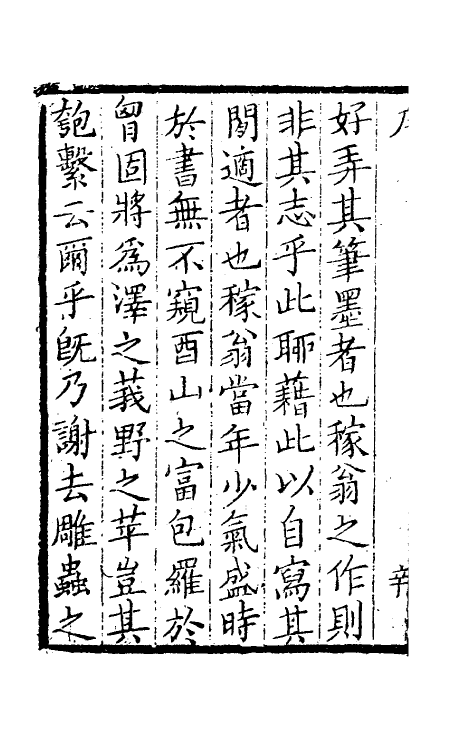 好弄其筆墨者也稼翁之作則
非其志乎此聊藉此以自寫其
閒適者也稼翁當年少氣盛時
於書無不窺酉山之富包羅於
胷固將爲澤之莪野之苹豈其
匏繫云爾乎旣乃謝去雕蟲之